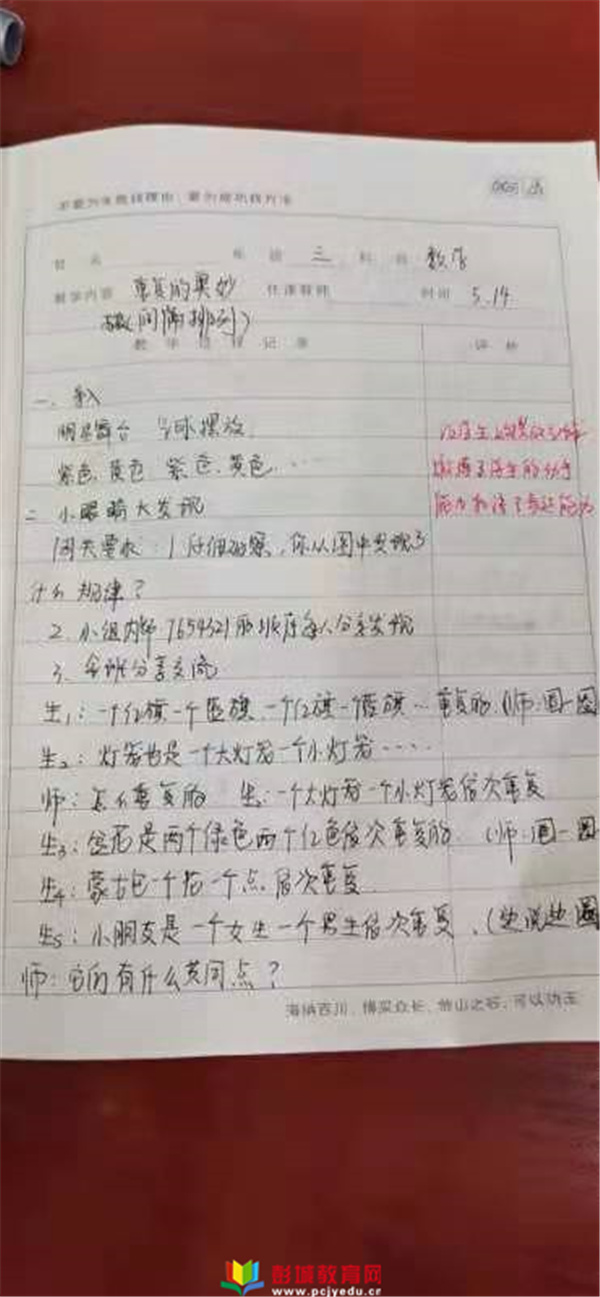 不要为失败找理由，要为成功找方法
姓 名 年 级 三 科 目 数学
教学内容 重复的奥妙 任课教师 时间 5.14
(间隔排列)
教 学 过 程 记 录 评 析
一、导入
明星舞台 气球摆放
紫色、黄色 紫色、黄色……
二 小眼睛大发现
闯关要求：1 仔细观察，你从图中发现了
什么规律？
2. 小组内部7654321的顺序每人分享发现
3. 全班分享交流
生1：一个红旗一个蓝旗、一个红旗一个蓝旗…重复的（师：圈一圈
生2：灯笼也是一个大灯笼一个小灯笼……
师：怎么重复的 生：一个大灯笼一个小灯笼依次重复
生3：盆花是两个绿色两个红色依次重复的.（师：圈一圈
生4：蒙古包一个花一个点依次重复
生5：小朋友是一个女生一个男生依次重复、（边说边圈
师：它们有什么共同点？
让学生
学生的动手
能力和语言表达能力
海纳百川，博采众长，他山之石，可以攻玉
彭城教育网
www.pcjyedu.cn